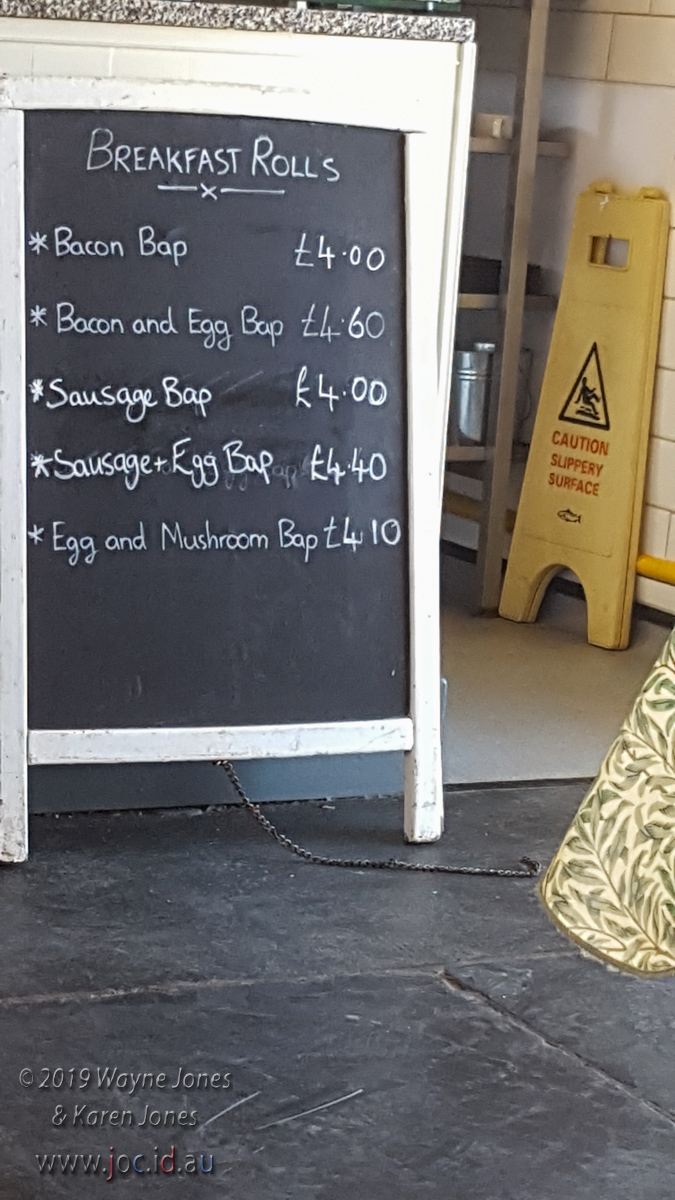 BREAKFAST ROLLS
* Bacon Bap £4.00
* Bacon and Egg Bap £4.60
* Sausage Bap £4.00
* Sausage + Egg Bap £4.40
* Egg and Mushroom Bap £4.10
CAUTION
SLIPPERY
SURFACE
© 2019 Wayne Jones
& Karen Jones
www.joc.id.au